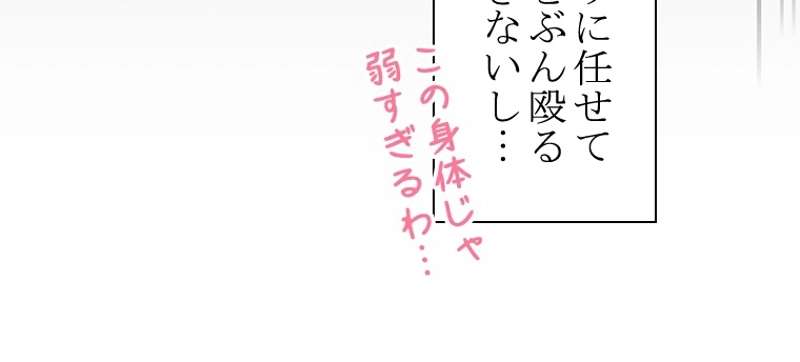 に任せて
ぶん殴る
ないし…
この身体じゃ
弱すぎるわ…